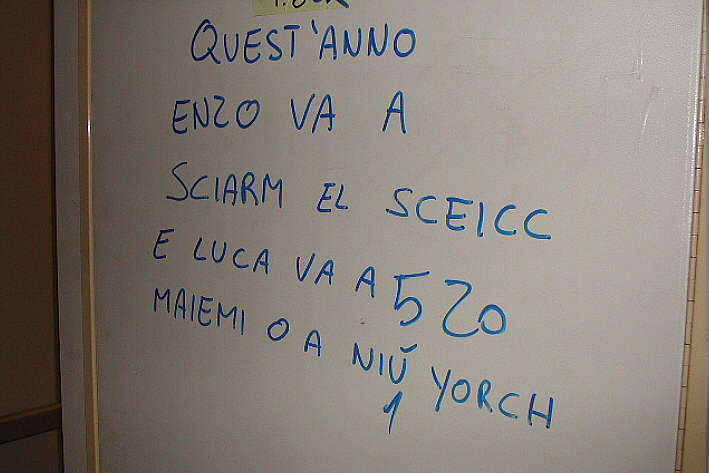 QUEST'ANNO
ENZO VA A
SCIARM EL SCEICC
E LUCA VA A 5 20
MAIEMI O A NIŬ YORCH
1